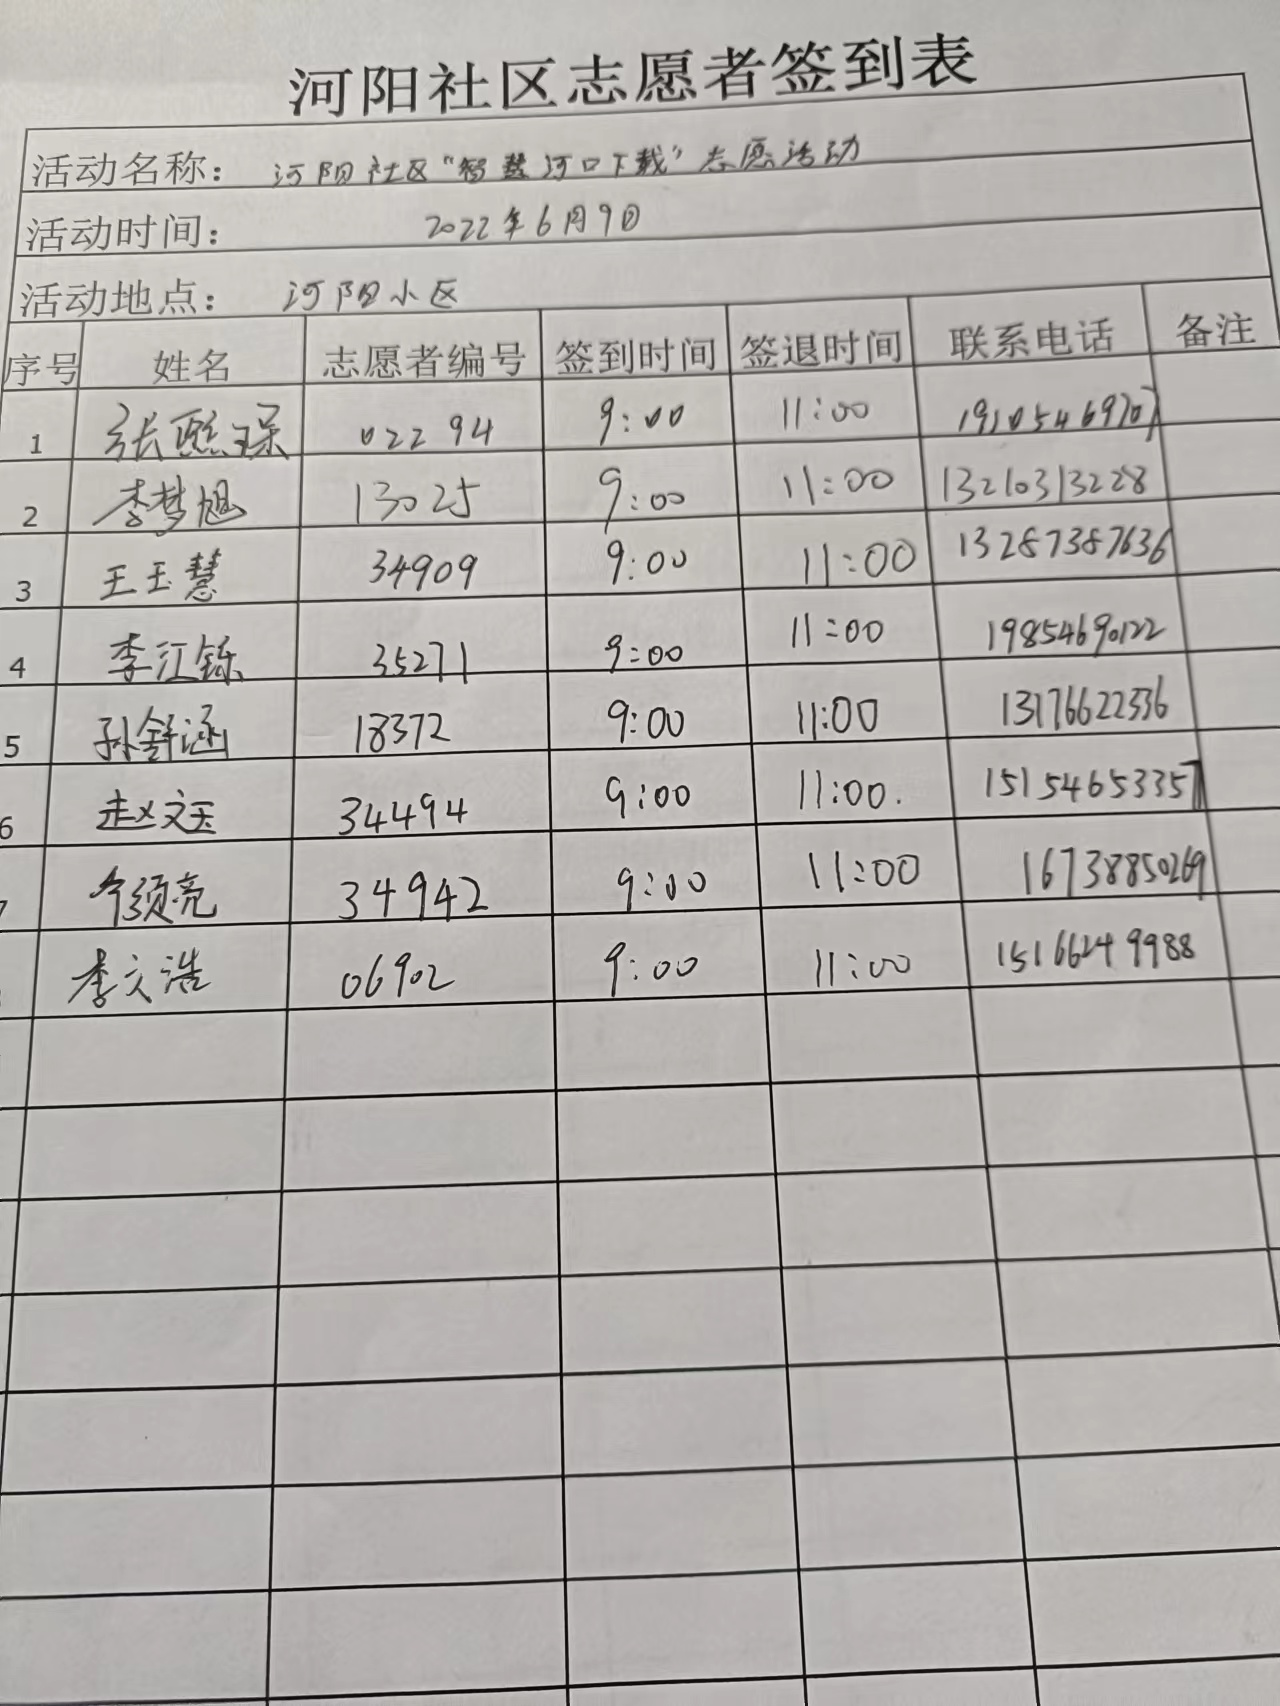 河阳社区志愿者签到表
活动名称： 河阳社区“智慧河口下载”志愿活动
活动时间： 2022年6月9日
活动地点： 河阳小区
序号 姓名 志愿者编号 签到时间 签退时间 联系电话 备注
1 张熙琛 02294 9:00 11:00 19105469707
2 李梦旭 13025 9:00 11:00 13210313228
3 王玉慧 34909 9:00 11:00 13287387636
4 李江铄 35271 9:00 11:00 19854690122
5 孙舒涵 18372 9:00 11:00 13176622336
6 赵文钰 34494 9:00 11:00. 15154653357
7 须亮 34942 9:00 11:00 16738850269
李文浩 06902 9:00 11:00 15166249988